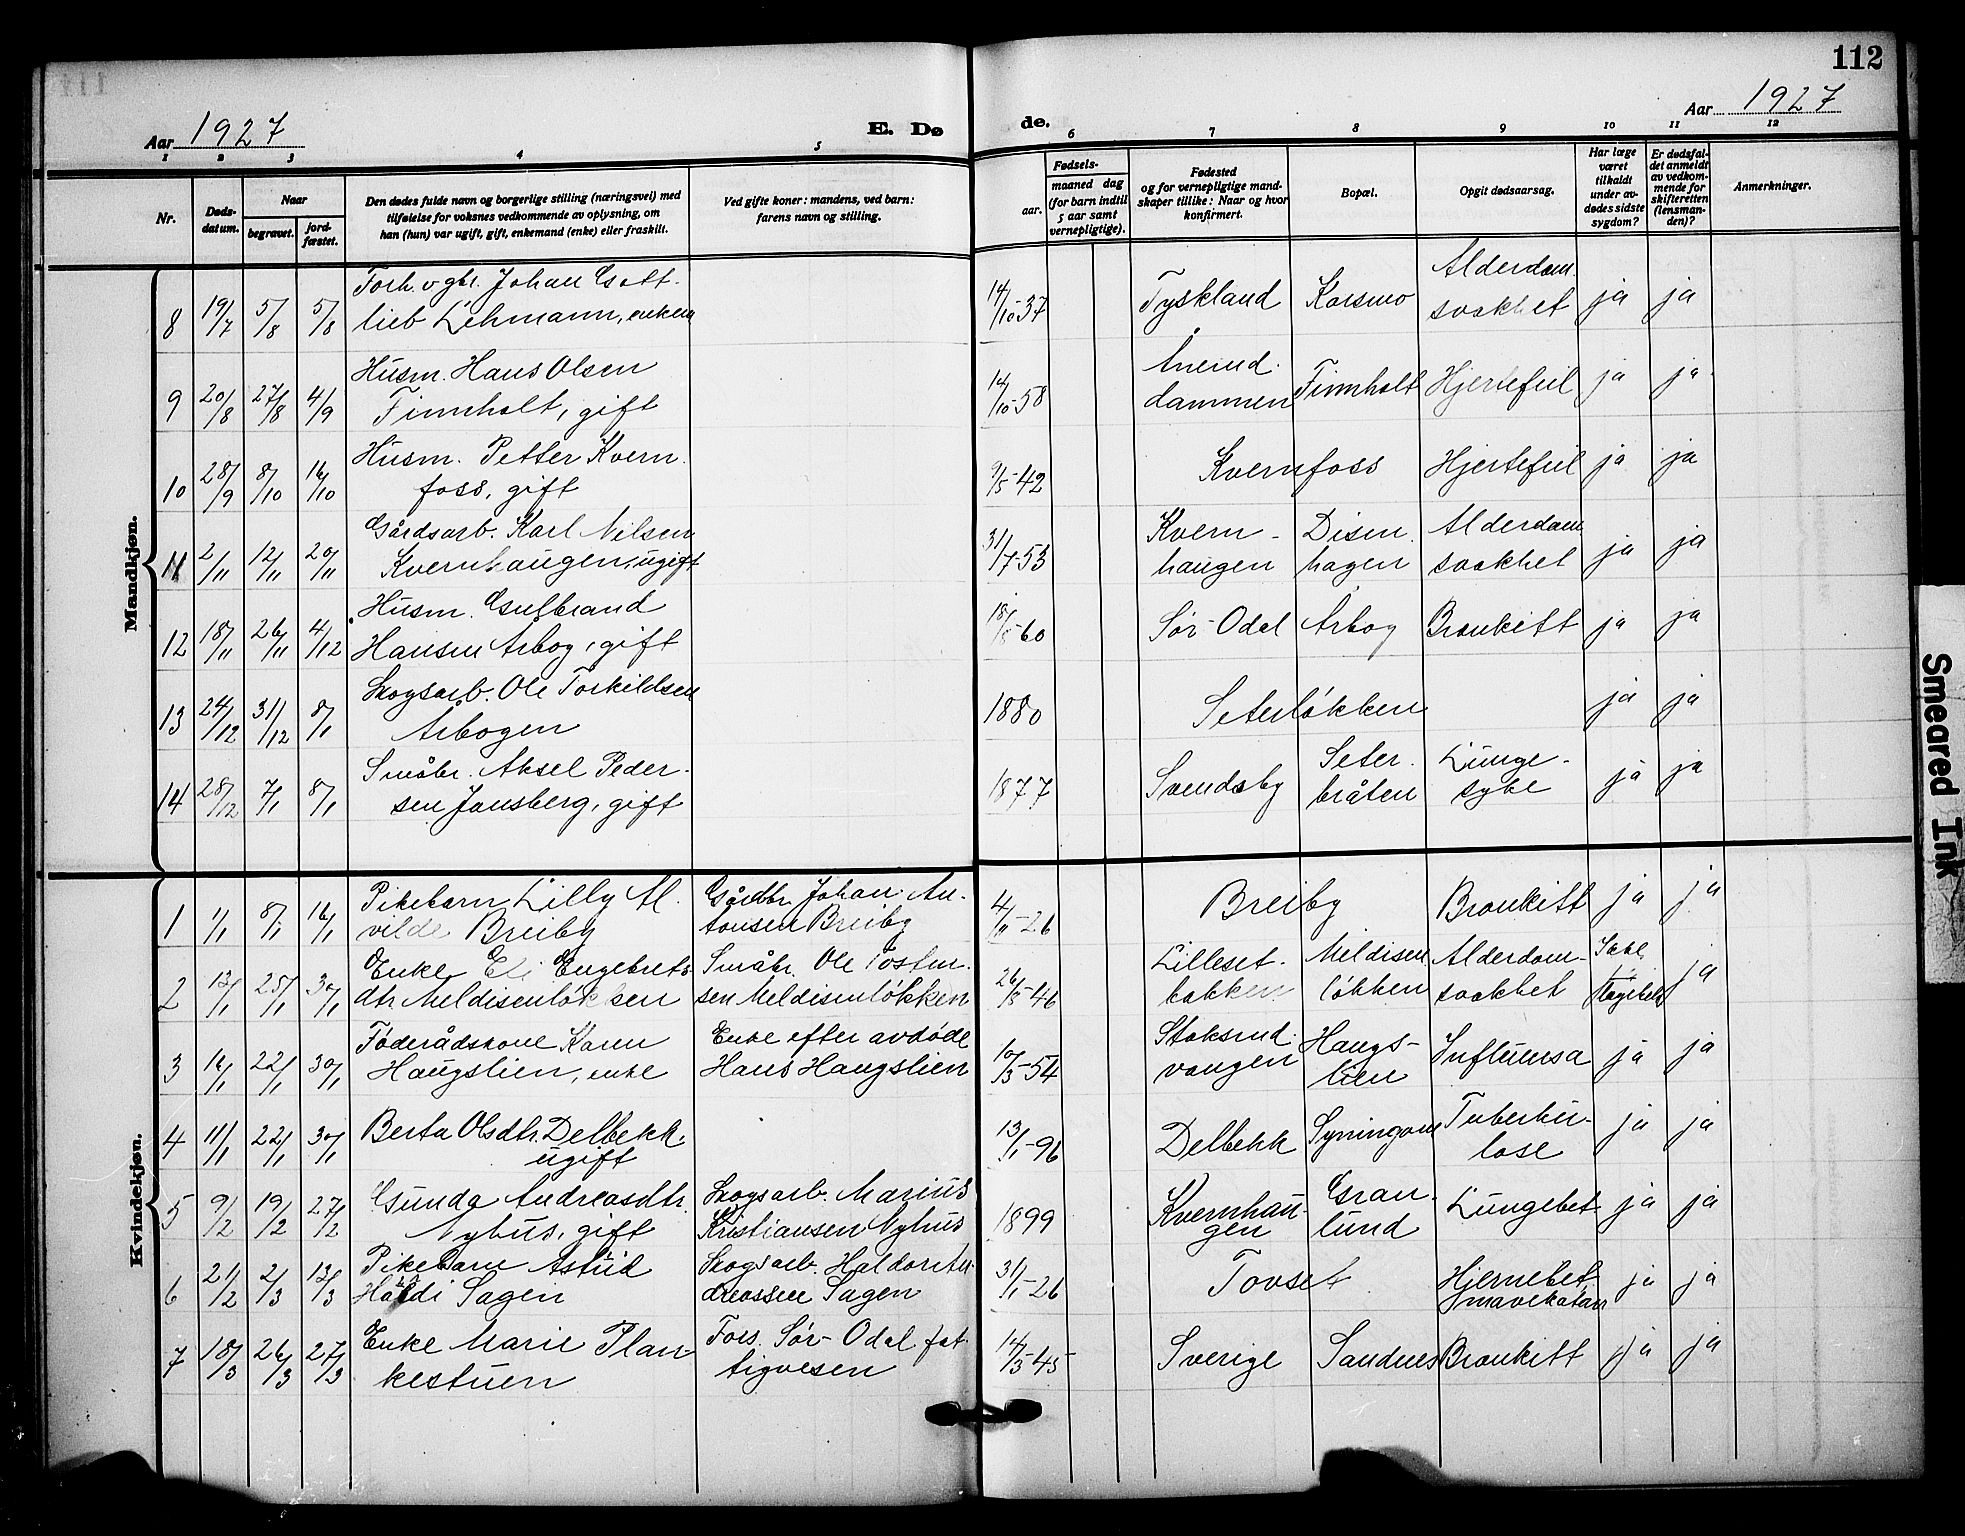 112
Aar 1927
E. Dø
de.
Aar 1927
1 2 3 4 5 6 7 8 9 10 11 12
Nr.
Døds-
datum.
Naar
begravet.
jord-
fæstet.
Den dødes fulde navn og borgerlige stilling (næringsvei) med
tilføielse for voksnes vedkommende av oplysning, om
han (hun) var ugift, gift, enkemand (enke) eller fraskilt.
Ved gifte koner: mandens, ved barn:
farens navn og stilling.
Fødsels-
aar.
maaned dag
(for barn indtil
5 aar samt
vernepligtige).
Fødested
og for vernepligtige mand-
skaper tillike: Naar og hvor
konfirmert.
Bopæl.
Opgit dødsaarsag.
Har læge
været
tilkaldt
under av-
dødes sidste
sygdom?
Er dødsfal-
det anmeldt
av vedkom-
mende for
skifteretten
(lensman-
den)?
Anmerkninger.
Mandkjøn.
8 19/7 5/8 5/8
Forh. v. gbr. Johan Gott-
lieb Lehmann, enkem
14/10-37 Tyskland Korsmo
Alderdom-
svakhet
ja ja
9 20/8 27/8 4/9
Husm. Hans Olsen
Finnholt, gift
14/10-58
dammen
Finnholt Hjertefeil ja ja
10 28/9 8/10 16/10
Husm. Petter Kvern-
foss, gift
9/5-42 Kvernfoss Hjertefeil ja ja
11 2/11 12/11 20/11
Gårdsarb. Karl Nilsen
Kvernhaugen, ugift
31/7-53
Kvern-
haugen
Disen-
hagen
Alderdom
svakhet
ja ja
12 18/11 26/11 4/12
Husm. Gulbrand
Hansen Årbog, gift
18/8-60 Sør-Odal Årbog Bronkitt ja ja
13 24/12 31/12 8/1
Skogsarb. Ole Torkildsen
Årbogen
1880 Seterløkken ja ja
14 28/12 7/1 8/1
Småbr. Aksel Peder-
sen Jonsberg, gift
1877 Svendsby
Seter-
bråten
Lunge-
syke
ja ja
Kvindekjøn.
1 1/1 8/1 16/1
Pikebarn Lilly Al-
vilde Breiby
Gårdbr. Johan An-
tonsen Breiby
4/11-26 Breiby Bronkitt ja ja
2 12/1 25/1 30/1
Enke Eli Engebrets-
dtr. Meldisenløkken
Småbr. Ole Josten-
sen Meldisenløkken
26/8-46
Lilleset-
bakken
Meldisen
løkken
Alderdom-
svakhet
ja
3 16/1 22/1 30/1
Føderådskone Karen
Haugslien, enke
Enke efter avdøde
Hans Haugslien
10/3-54
Stoksrud-
vangen
Haugs-
lien
Influensa ja ja
4 11/1 22/1 30/1
Berta Olsdtr. Delbekk,
ugift
13/1-96 Delbekk Syningom
Tuberku-
lose
ja ja
5 9/2 19/2 27/2
Gunda Andreasdtr.
Nyhus, gift
Skogsarb. Marius
Kristiansen Nyhus
1899
Kvernhau-
gen
Gran-
lund
Lungebet ja ja
6 21/2 2/3 13/3
Pikebarn Astrid
Haldi Sagen
Skogsarb. Haldor An-
dreassen Sagen
31/1-26 Tovset
Hjernebet.
mavekatarr
ja ja
7 18/3 26/3 27/3
Enke Marie Plan-
kestuen
Fors. Sør-Odal fat-
tigvesen
14/3-45 Sverige Sandnes Bronkitt ja ja
Smeared Ink